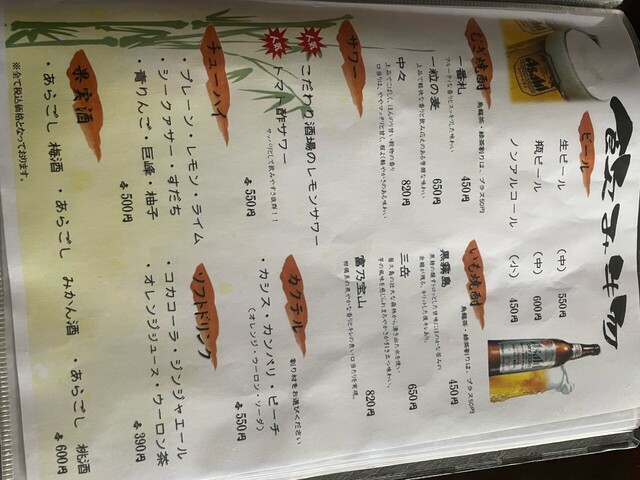 お飲み物
ビール
生ビール (中) 550円
瓶ビール (中) 600円
ノンアルコール (小) 450円
むぎ焼酎 烏龍茶・緑茶割りは、プラス50円
一番札 450円
一粒の麦 650円
中々 820円
いも焼酎 烏龍茶・緑茶割りは、プラス50円
黒霧島 450円
三岳 650円
富乃宝山 820円
サワー
人気 こだわり酒場のレモンサワー
人気 トマト酢サワー
サッパリとして飲みやすさ抜群！！
各550円
カクテル 割り材をお選びください
・カシス・カンパリ・ピーチ
(オレンジ・ウーロン・ソーダ)
各550円
チューハイ
・プレーン・レモン・ライム
・シークァサー・すだち
・青りんご・巨峰・柚子
各500円
ソフトドリンク
・コカコーラ・ジンジャエール
・オレンジジュース・ウーロン茶
各390円
果実酒
・あらごし 梅酒 ・あらごし みかん酒 ・あらごし 桃酒
各600円
※全て税込価格となっております。
Asahi